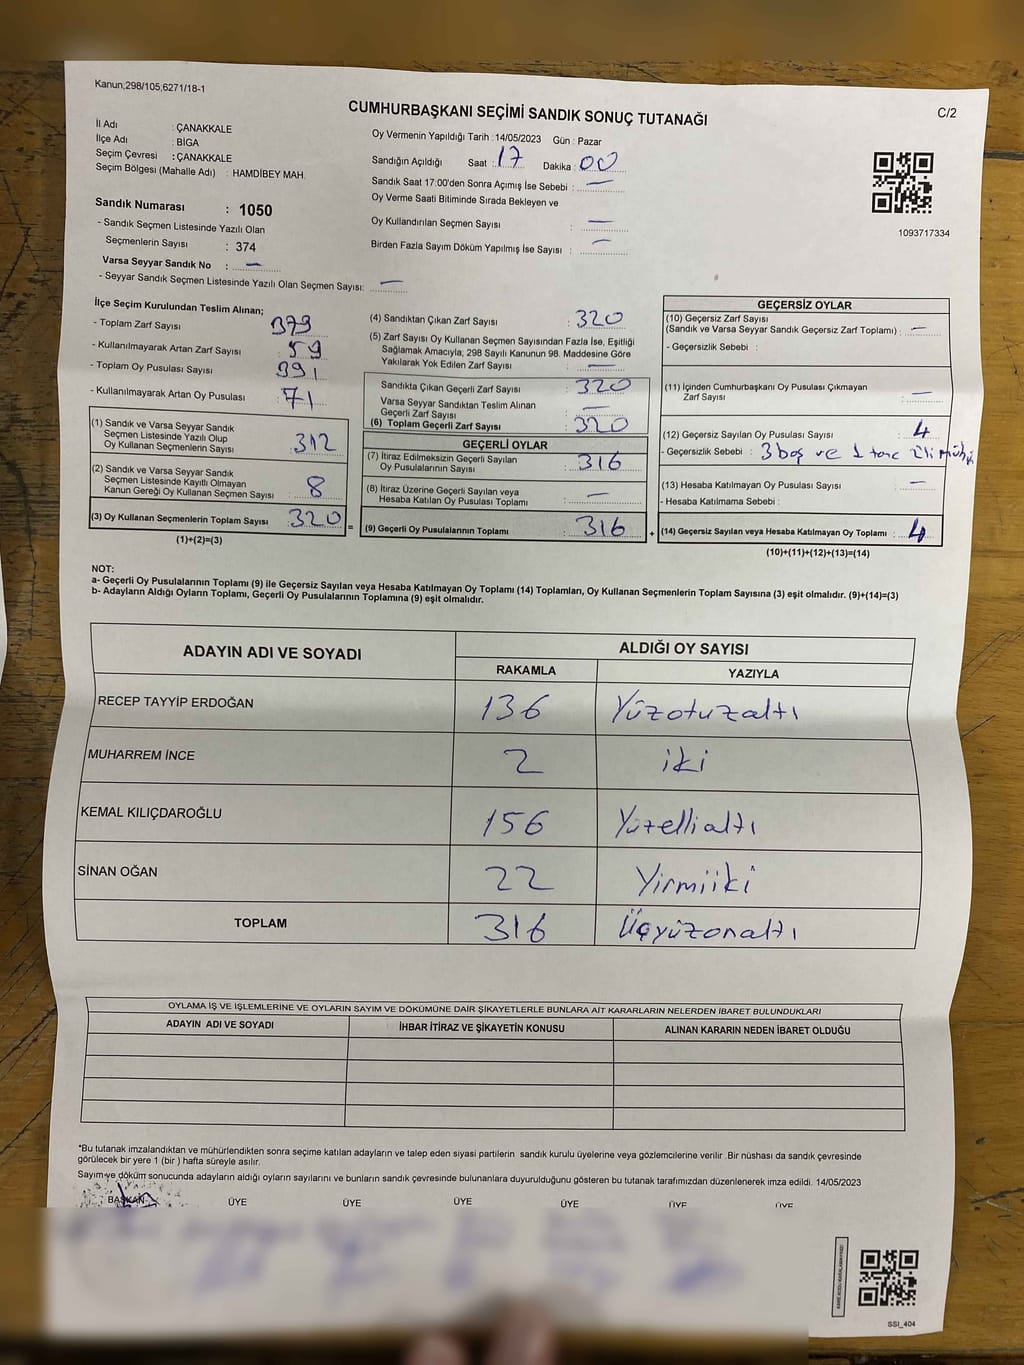 Kanun;298/105,6271/18-1
C/2
CUMHURBAŞKANI SEÇİMİ SANDIK SONUÇ TUTANAĞI
İl Adı : ÇANAKKALE
İlçe Adı : BİGA
Seçim Çevresi : ÇANAKKALE
Seçim Bölgesi (Mahalle Adı) : HAMDİBEY MAH.
Sandık Numarası : 1050
- Sandık Seçmen Listesinde Yazılı Olan
Seçmenlerin Sayısı : 374
Varsa Seyyar Sandık No : —
- Seyyar Sandık Seçmen Listesinde Yazılı Olan Seçmen Sayısı: —
Oy Vermenin Yapıldığı Tarih : 14/05/2023 Gün : Pazar
Sandığın Açıldığı Saat : 17 Dakika : 00
Sandık Saat 17:00'den Sonra Açımış İse Sebebi : —
Oy Verme Saati Bitiminde Sırada Bekleyen ve
Oy Kullandırılan Seçmen Sayısı : —
Birden Fazla Sayım Döküm Yapılmış İse Sayısı : —
1093717334
İlçe Seçim Kurulundan Teslim Alınan;
- Toplam Zarf Sayısı 379
- Kullanılmayarak Artan Zarf Sayısı : 59
- Toplam Oy Pusulası Sayısı 391
- Kullanılmayarak Artan Oy Pusulası : 71
(1) Sandık ve Varsa Seyyar Sandık
Seçmen Listesinde Yazılı Olup
Oy Kullanan Seçmenlerin Sayısı : 312
(2) Sandık ve Varsa Seyyar Sandık
Seçmen Listesinde Kayıtlı Olmayan
Kanun Gereği Oy Kullanan Seçmen Sayısı : 8
(3) Oy Kullanan Seçmenlerin Toplam Sayısı : 320
(1)+(2)=(3)
=
(4) Sandıktan Çıkan Zarf Sayısı : 320
(5) Zarf Sayısı Oy Kullanan Seçmen Sayısından Fazla İse, Eşitliği
Sağlamak Amacıyla, 298 Sayılı Kanunun 98. Maddesine Göre
Yakılarak Yok Edilen Zarf Sayısı : —
Sandıkta Çıkan Geçerli Zarf Sayısı : 320
Varsa Seyyar Sandıktan Teslim Alınan
Geçerli Zarf Sayısı : —
(6) Toplam Geçerli Zarf Sayısı : 320
GEÇERLİ OYLAR
(7) İtiraz Edilmeksizin Geçerli Sayılan
Oy Pusulalarının Sayısı : 316
(8) İtiraz Üzerine Geçerli Sayılan veya
Hesaba Katılan Oy Pusulası Toplamı : —
(9) Geçerli Oy Pusulalarının Toplamı : 316
+
GEÇERSİZ OYLAR
(10) Geçersiz Zarf Sayısı
(Sandık ve Varsa Seyyar Sandık Geçersiz Zarf Toplamı) : —
- Geçersizlik Sebebi :
(11) İçinden Cumhurbaşkanı Oy Pusulası Çıkmayan
Zarf Sayısı : —
(12) Geçersiz Sayılan Oy Pusulası Sayısı : 4
- Geçersizlik Sebebi : 3 boş ve 1 tane
(13) Hesaba Katılmayan Oy Pusulası Sayısı : —
- Hesaba Katılmama Sebebi :
(14) Geçersiz Sayılan veya Hesaba Katılmayan Oy Toplamı : 4
(10)+(11)+(12)+(13)=(14)
NOT:
a- Geçerli Oy Pusulalarının Toplamı (9) ile Geçersiz Sayılan veya Hesaba Katılmayan Oy Toplamı (14) Toplamları, Oy Kullanan Seçmenlerin Toplam Sayısına (3) eşit olmalıdır. (9)+(14)=(3)
b- Adayların Aldığı Oyların Toplamı, Geçerli Oy Pusulalarının Toplamına (9) eşit olmalıdır.
ADAYIN ADI VE SOYADI ALDIĞI OY SAYISI
RAKAMLA YAZIYLA
RECEP TAYYİP ERDOĞAN 136 Yüzotuzaltı
MUHARREM İNCE 2 iki
KEMAL KILIÇDAROĞLU 156 Yüzellialtı
SİNAN OĞAN 22 Yirmiiki
TOPLAM 316 Üçyüzonaltı
OYLAMA İŞ VE İŞLEMLERİNE VE OYLARIN SAYIM VE DÖKÜMÜNE DAİR ŞİKAYETLERLE BUNLARA AİT KARARLARIN NELERDEN İBARET BULUNDUKLARI
ADAYIN ADI VE SOYADI İHBAR İTİRAZ VE ŞİKAYETİN KONUSU ALINAN KARARIN NEDEN İBARET OLDUĞU
*Bu tutanak imzalandıktan ve mühürlendikten sonra seçime katılan adayların ve talep eden siyasi partilerin sandık kurulu üyelerine veya gözlemcilerine verilir .Bir nüshası da sandık çevresinde
görülecek bir yere 1 (bir ) hafta süreyle asılır.
Sayım ve döküm sonucunda adayların aldığı oyların sayılarını ve bunların sandık çevresinde bulunanlara duyurulduğunu gösteren bu tutanak tarafımızdan düzenlenerek imza edildi. 14/05/2023
BAŞKAN ÜYE ÜYE ÜYE ÜYE ÜYE ÜYE
SSI_404